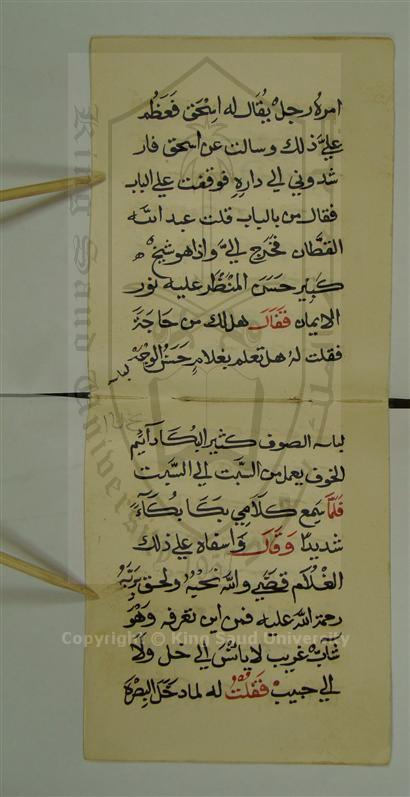 امره رجل يقال له اسحق فعظم
علي ذلك وسالت عن اسحق فار
شدوني الي داره فوقفت علي الباب
فقال من بالباب قلت عبد الله
القطان فخرج اليّ واذا هو شيخ
كبير حسن المنظر عليه نور
الايمان فقال هل لك من حاجة
فقلت له هل تعلم بغلام حسن الوجه
لباسه
لباسه الصوف كثير البكا دآئم
الخوف يعمل من السبت الي السبت
فلمّا سمع كلامي بكا بكآءً
شديدًا وقال وآسفاه علي ذلك
الغلام قضي والله نحبه ولحق بربّه
رحمة الله عليه فمن اين تعرفه وهو
شابّ غريب لا يانس الي خل ولا
الي حبيب فقلت له لما دخل البصرة
King Saud University
Copyright © King Saud University